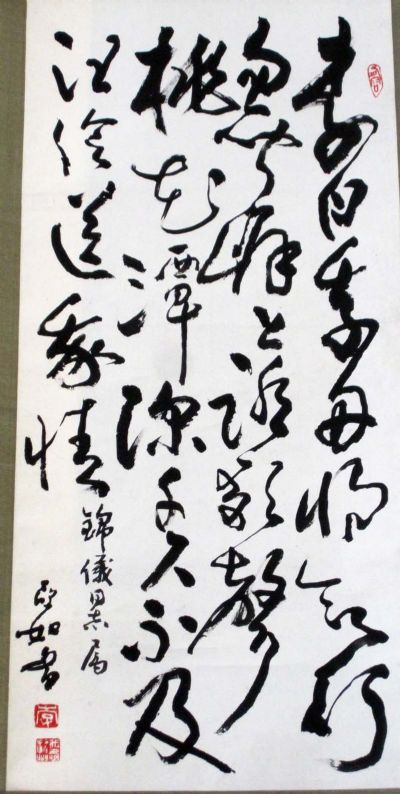 李白乘舟將欲行
忽聞岸上踏歌聲
桃花潭深千尺不及
汪倫送我情
錦儀同志属
亞如書